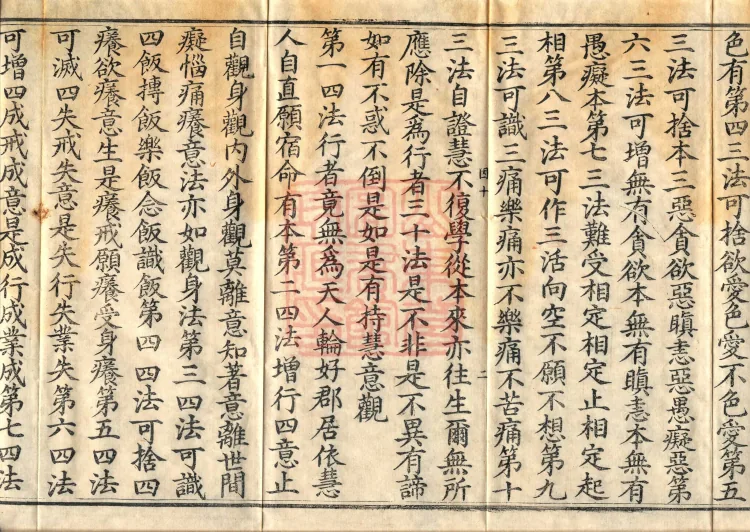 色有第四三法可捨欲愛色愛不色愛第五
三法可捨本三惡貪欲惡瞋恚惡愚癡惡第
六三法可增無有貪欲本無有瞋恚本無有
愚癡本第七三法難受相定相定止相定起
相第八三法可作三活向空不願不想第九
三法可識三痛樂痛亦不樂痛不苦痛第十
三法自證慧不復學從本來亦往生爾無所
四十 二
應除是為行者三十法是不非是不異有諦
如有不惑不倒是如是有持慧意觀
第一四法行者竟無為天人輪好郡居依慧
人自直願宿命有本第二四法增行四意止
自觀身觀內外身觀莫離意知著意離世間
癡惱痛癢意法亦如觀身法第三四法可識
四飯摶飯樂飯念飯識飯第四四法可捨四
癢欲癢意生是癢戒願癢受身癢第五四法
可滅四失戒失意是失行失業失第六四法
可增四成戒成意是成行成業成第七四法